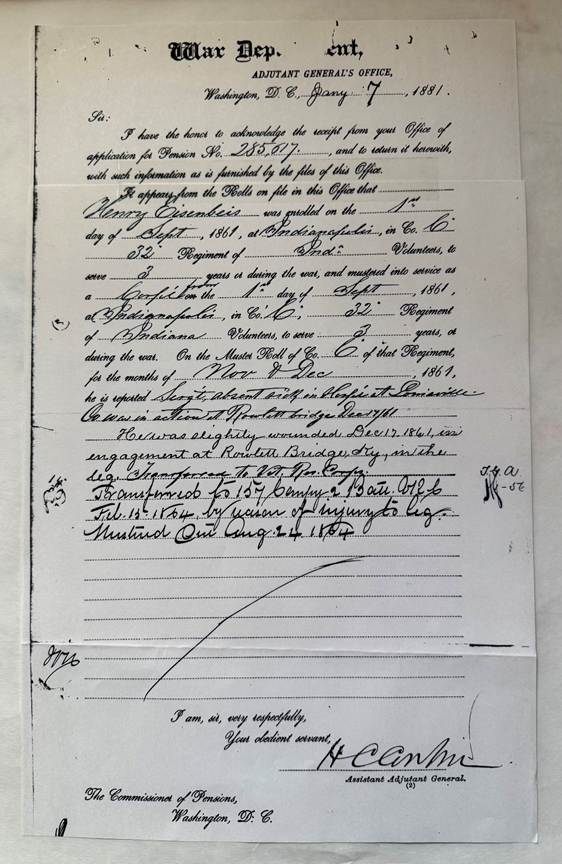 War Dep ent,
ADJUTANT GENERAL'S OFFICE,
Washington, D. C., Jany 7, 1881.
Sir:
I have the honor to acknowledge the receipt from your Office of
application for Pension No. 285,617, and to return it herewith,
with such information as is furnished by the files of this Office.
It appears from the Rolls on file in this Office that
Henry Eisenbeis was enrolled on the 1st
day of Sept, 1861, at Indianapolis, in Co. C
32 Regiment of Inda Volunteers, to
serve 3 years or during the war, and mustered into service as
a from on the 1st day of Sept, 1861,
at Indianapolis, in Co. C, 32 Regiment
of Indiana Volunteers, to serve 3 years, or
during the war. On the Muster Roll of Co. C of that Regiment,
for the months of Nov & Dec, 1861,
he is reported Sergt, absent sick in Hospt at Louisville
in action at Rowlett bridge Dec 17/61
He was slightly wounded Dec. 17. 1861, in
engagement at Rowlett Bridge, Ky, in the
leg. Transferred to Vet. Res. Corps.
Transferred to 157 Compy 2 Batt. V R C
Feb. 15 1864, by reason of injury to leg.
Mustered Out Aug 24 1864
I am, sir, very respectfully,
Your obedient servant,
Assistant Adjutant General.
(2)
The Commissioner of Pensions,
Washington, D. C.